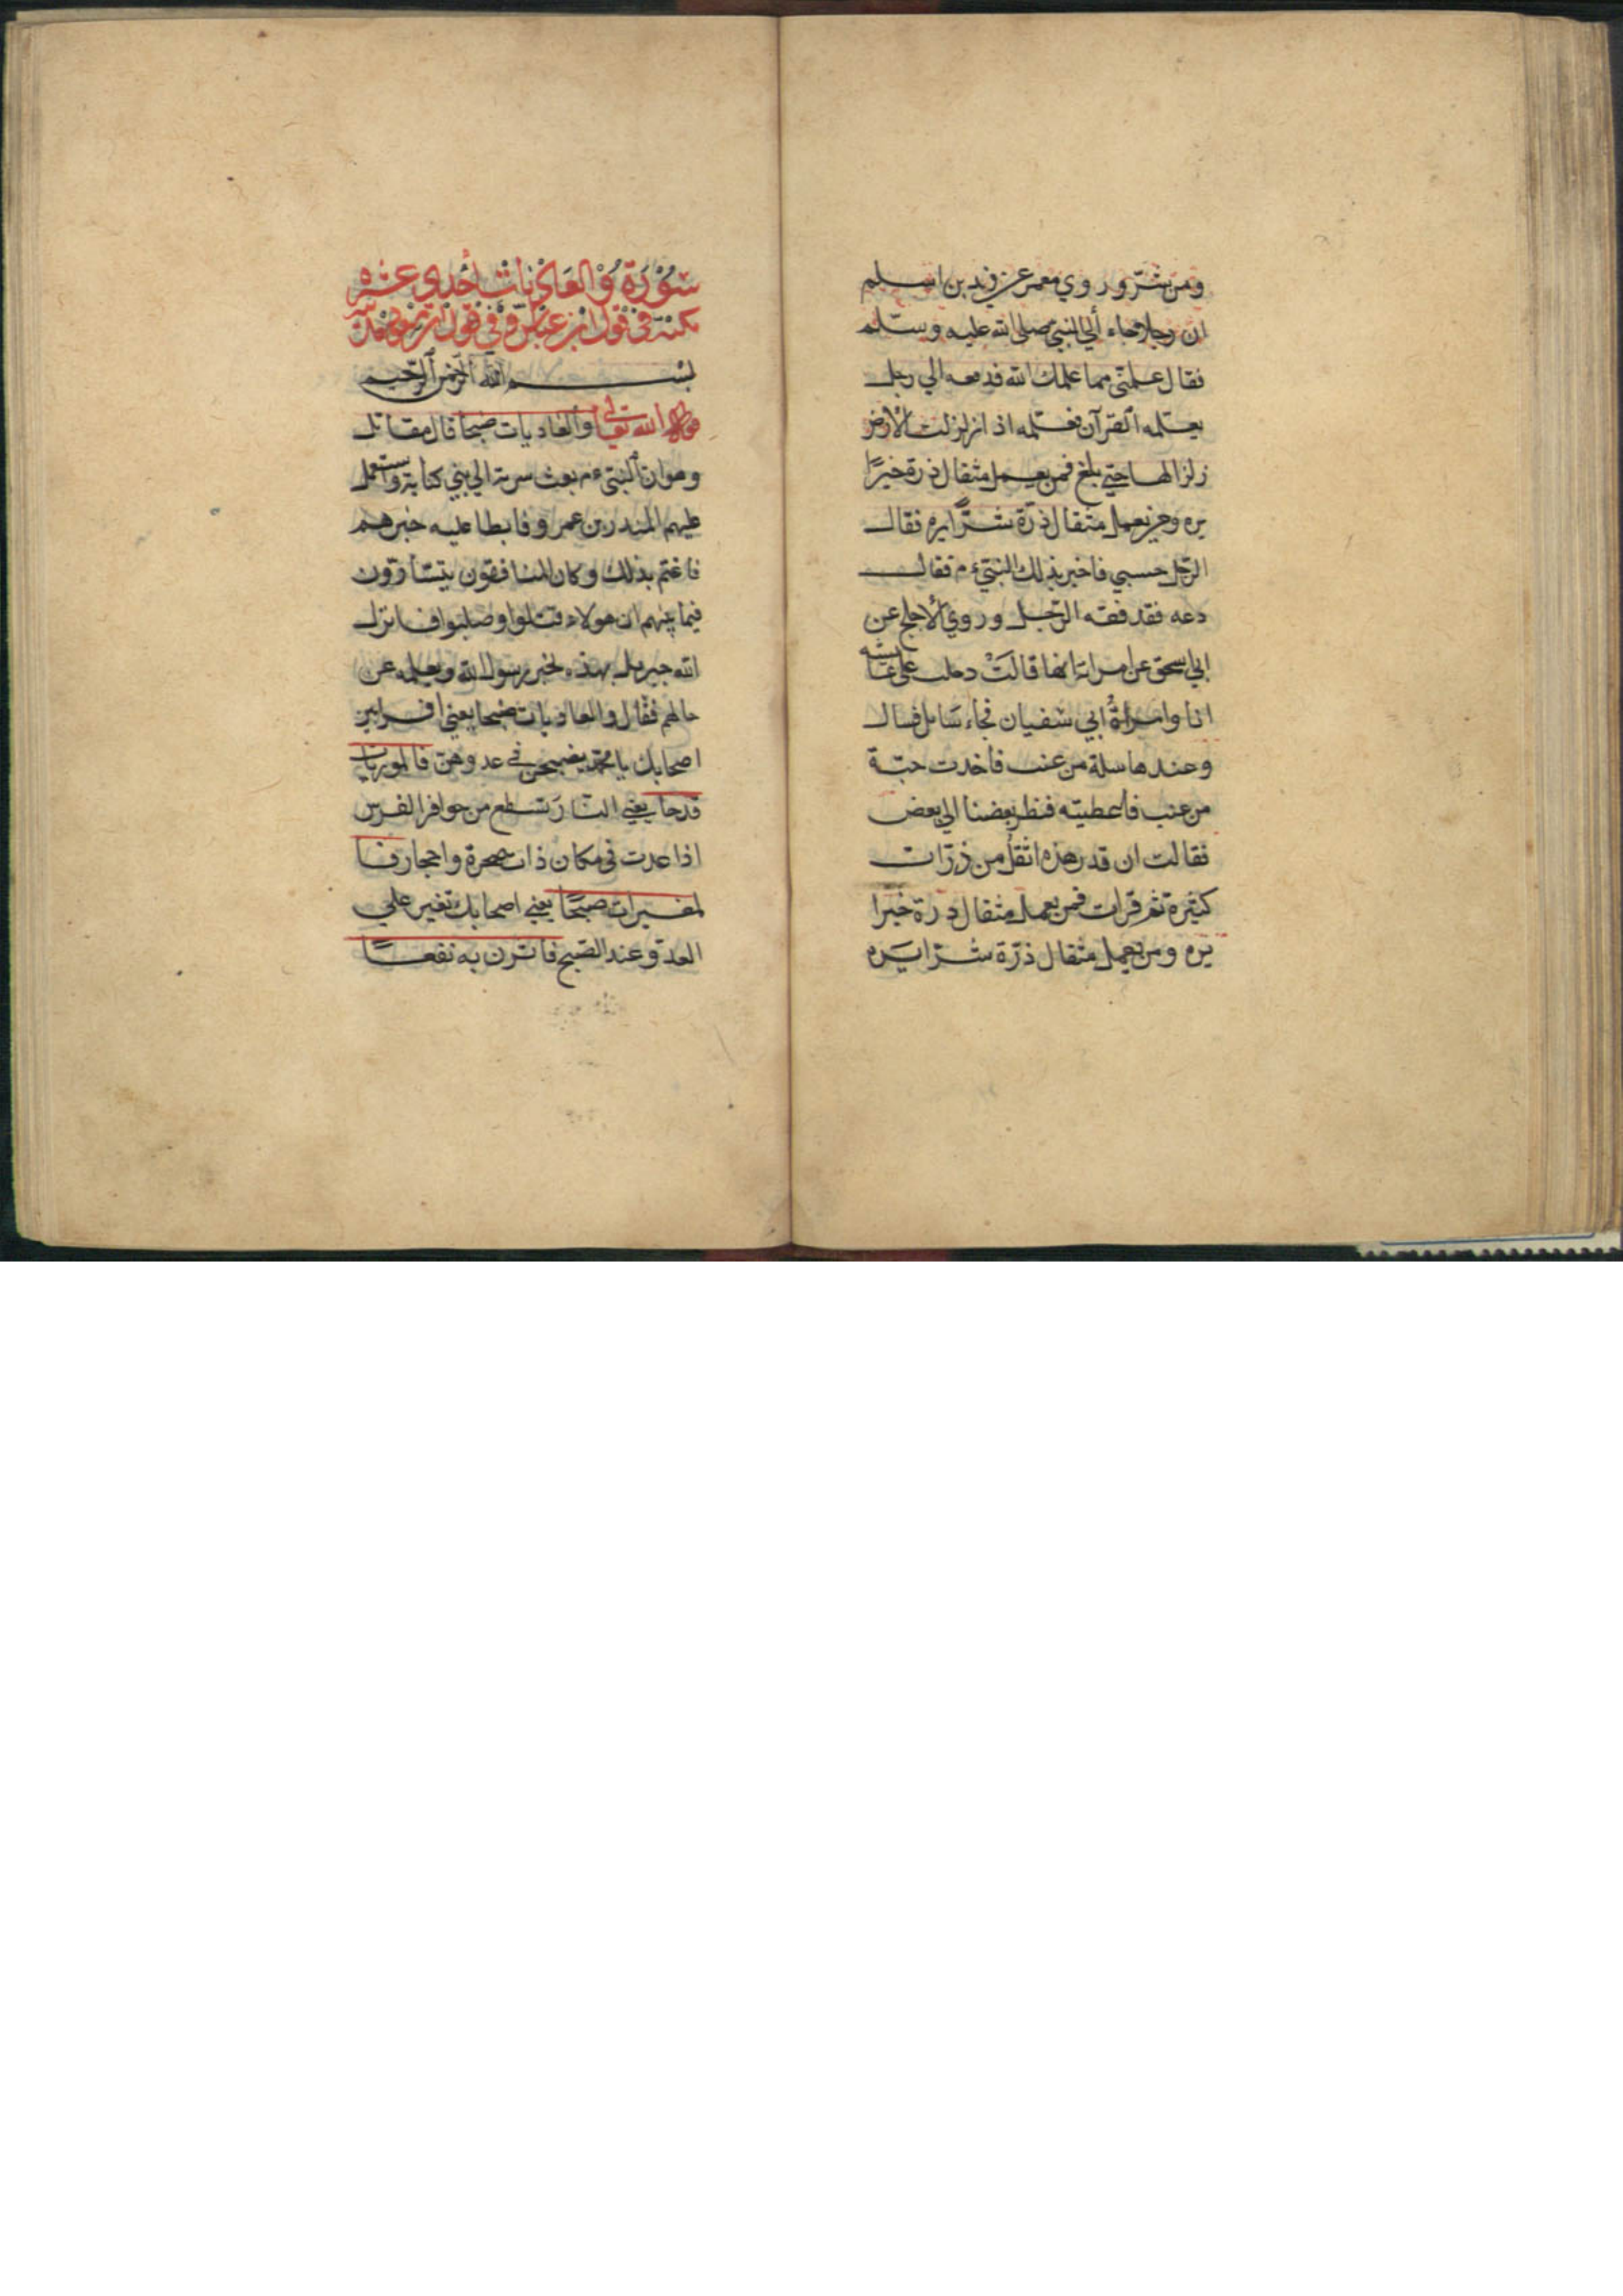 ومن شرّ وروي معمر عن زيد بن اسلم
ان رجلا جاء الي النبي صلي الله عليه وسلّم
فقال علمني مما علمك الله فدفعه الي رجل
يعلمه القرآن فعلمه اذا زلزلت الارض
زلزالها حتي بلغ فمن يعمل مثقال ذرة خيرًا
يره ومن يعمل مثقال ذرّة شرًّا يره فقال
الرّجل حسبي فاخبر بذلك النبيّ ءم فقال
دعه فقد فقه الرّجل وروي الأجلح عن
ابي اسحق عن امراءته انها قالت دخلت علي عائشه
انا وامراةُ ابي سفيان فجاء سَايل فسال
وعندها سلة من عنب فاخذت حبّة
من عنب فاعطيته فنظر بعضنا الي بعض
فقالت ان قدر هذه اثقل من ذرّات
كثيرة ثم قرات فمن يعمل مثقال ذرة خيرا
يره ومن يعمل مثقال ذرّة شرّا يَره
سُوْرَة وُالعَادِيَات أحْدي عشره
مكيّة في قول ابن عباسٍ وفي قول
بسم الله الرّحمن الرّحيم
قوله الله تعالي والعاديات ضبحا قال مقاتل
وهو ان النبيّ ءم بعث سرية الي بني كنانة واستعمل
عليهم المنذر بن عمرو فابطا عليه خبرهم
فاغتم بذلك وكان المنافقون يتسّارّون
فيما بينهم ان هولاء قتلوا وصلبوا فانزل
الله جبريل بهذه يخبر رسول الله ويعلمه عن
حالهم فقال والعاديات ضبحا يعني افراس
اصحابك يا محمّد يضبحن في عدوهنّ فالموريات
قدحا يعني النّارَ تسطع من حوافر الفرس
اذا عدت في مكان ذات صخرة واحجار فا
لمغيرات صبحًا يعني اصحابك تغير علي
العدوّ عند الصّبح فاثرن به نقعًا